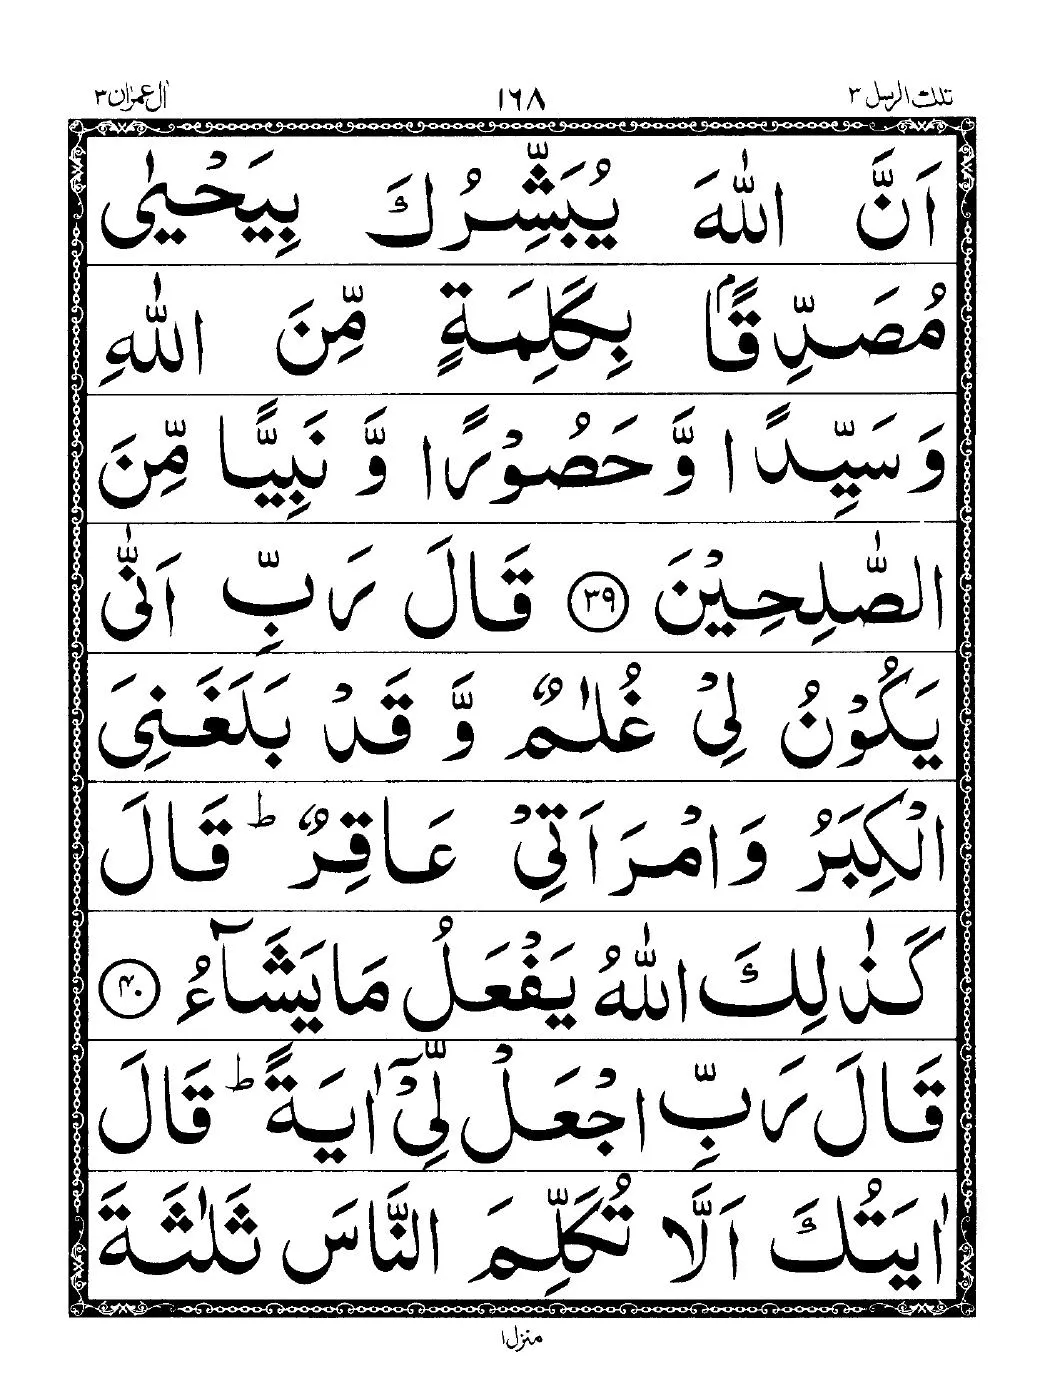 تلك الرسل ٣ ١٦٨ اٰل عمرٰن ٣
اَنَّ اللّٰهَ يُبَشِّرُكَ بِيَحْيٰى
مُصَدِّقًۢا بِكَلِمَةٍ مِّنَ اللّٰهِ
وَسَيِّدًا وَّ حَصُوْرًا وَّ نَبِيًّا مِّنَ
الصّٰلِحِيْنَ ٣٩ قَالَ رَبِّ اَنّٰى
يَكُوْنُ لِيْ غُلٰمٌ وَّ قَدْ بَلَغَنِىَ
الْكِبَرُ وَامْرَاَتِيْ عَاقِرٌ ؕ قَالَ
كَذٰلِكَ اللّٰهُ يَفْعَلُ مَا يَشَآءُ ٤٠
قَالَ رَبِّ اجْعَلْ لِّيْۤ اٰيَةً ؕ قَالَ
اٰيَتُكَ اَلَّا تُكَلِّمَ النَّاسَ ثَلٰثَةَ
منزل ١